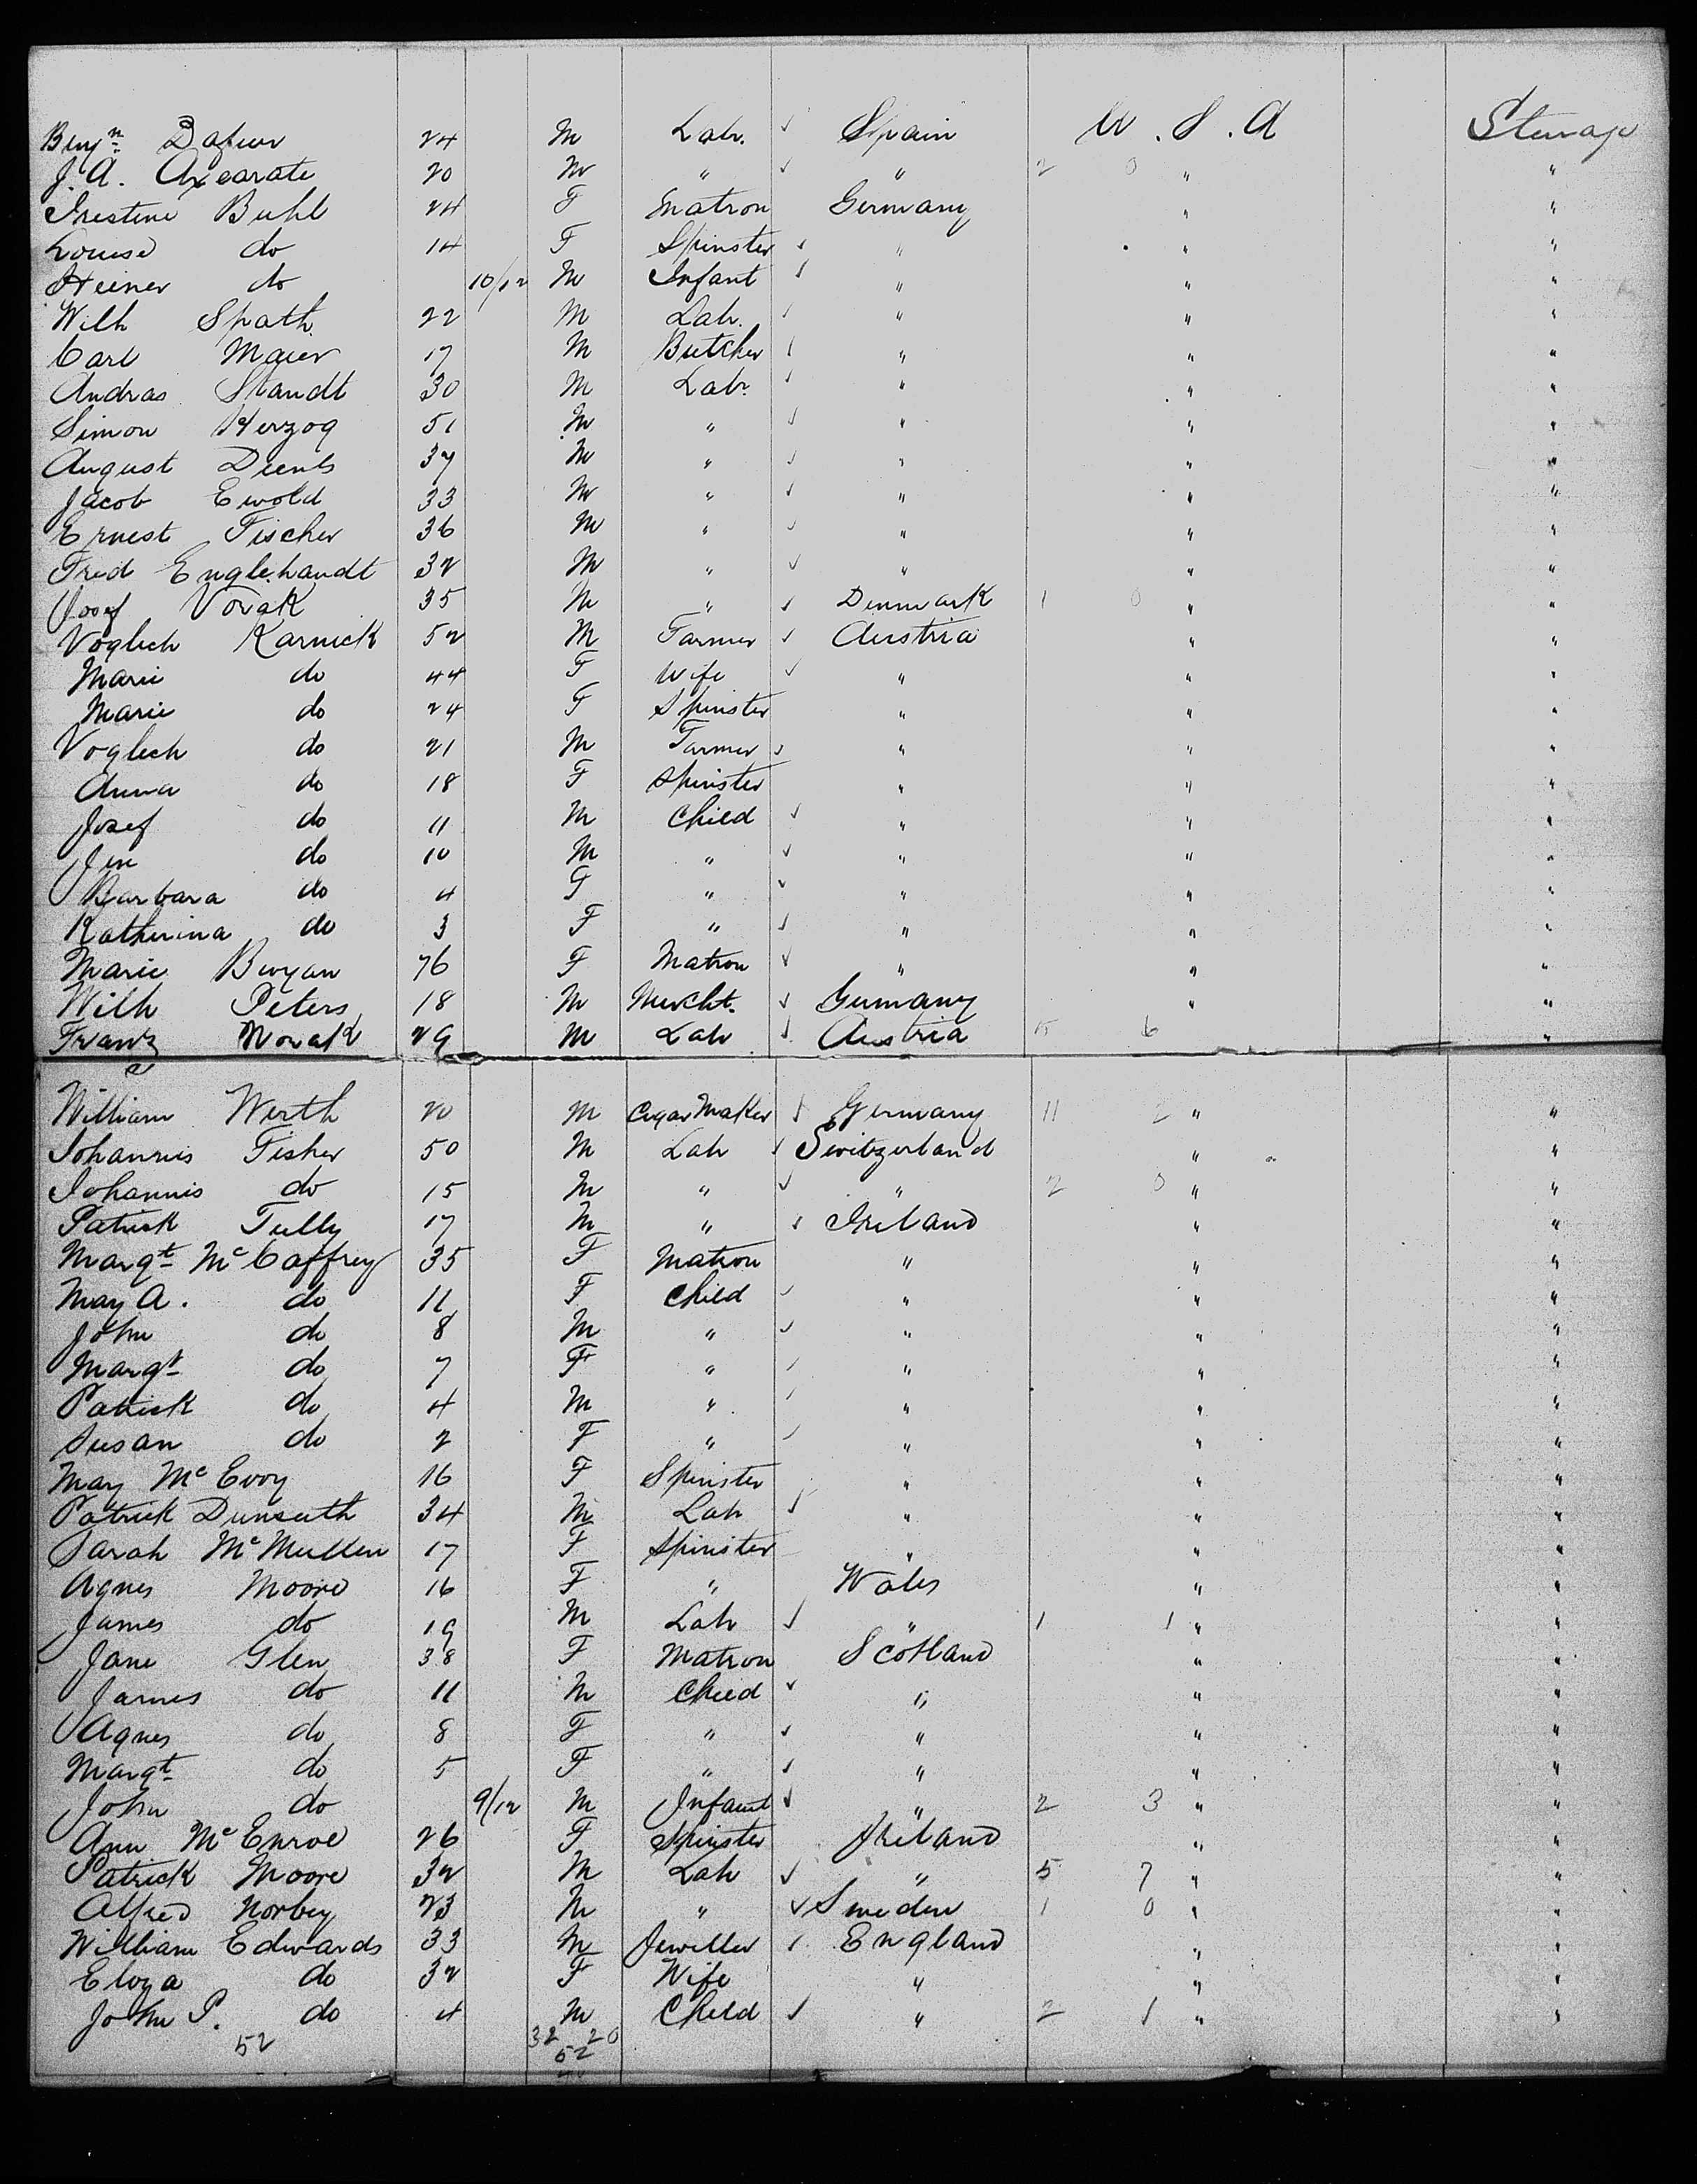 Benjn Dafuer 24 M Labr. ✓ Spain U.S.A Steerage
J. A. Axcarate 20 M " ✓ " 2 0 " "
Irestine Buhl 24 F Matron Germany " "
Louise do 14 F Spinster ✓ " " "
Heiner do 10/12 M Infant ✓ " " "
Wilh Spath 22 M Lab. ✓ " " "
Carl Maier 17 M Butcher ✓ " " "
Andras Standt 30 M Labr. ✓ " " "
Simon Herzog 51 M " ✓ " " "
August Dients 37 M " ✓ " " "
Jacob Ewold 33 M " ✓ " " "
Ernest Fischer 36 M " ✓ " " "
Fred Englehandt 32 M " ✓ " " "
Josef Vorak 35 M " ✓ Denmark 1 0 " "
Voglech Karnick 52 M Farmer ✓ Austria " "
Marie do 44 F Wife ✓ " " "
Marie do 24 F Spinster " " "
Voglech do 21 M Farmer ✓ " " "
Anna do 18 F Spinster " " "
Josef do 11 M Child ✓ " " "
Jen do 10 M " ✓ " " "
Barbara do 4 F " ✓ " " "
Katherina do 3 F " ✓ " " "
Marie Bwyan 76 F Matron ✓ " " "
Wilh Peters 18 M Mercht. ✓ Germany " "
Franz Novak 29 M Lab ✓ Austria 15 6 "
William Werth 20 M Cigar Maker ✓ Germany 11 2 " "
Johannis Fisher 50 M Lab ✓ Switzerland " "
Johannis do 15 M " ✓ " 2 0 " "
Patrick Tully 17 M " ✓ Ireland " "
Margt McCaffrey 35 F Matron " " "
May A. do 11 F Child ✓ " " "
John do 8 M " ✓ " " "
Margt do 7 F " ✓ " " "
Patrick do 4 M " ✓ " " "
Susan do 2 F " ✓ " " "
May McEvoy 16 F Spinster " " "
Patrick Dunseith 34 M Lab ✓ " " "
Sarah McMullen 17 F Spinster " " "
Agnes Moore 16 F " Wales " "
James do 19 M Lab ✓ " 1 1 " "
Jane Glen 38 F Matron Scotland " "
James do 11 M Child ✓ " " "
Agnes do 8 F " ✓ " " "
Margt do 5 F " ✓ " " "
John do 9/12 M Infant ✓ " 2 3 " "
Ann McEnroe 26 F Spinster Ireland " "
Patrick Moore 32 M Lab ✓ " 5 7 " "
Alfred Norbey 23 M " ✓ Sweden 1 0 " "
William Edwards 33 M Jeweller ✓ England " "
Eloya do 32 F Wife " " "
John P. do 4 M Child ✓ " 2 1 " "
52 32 20
52